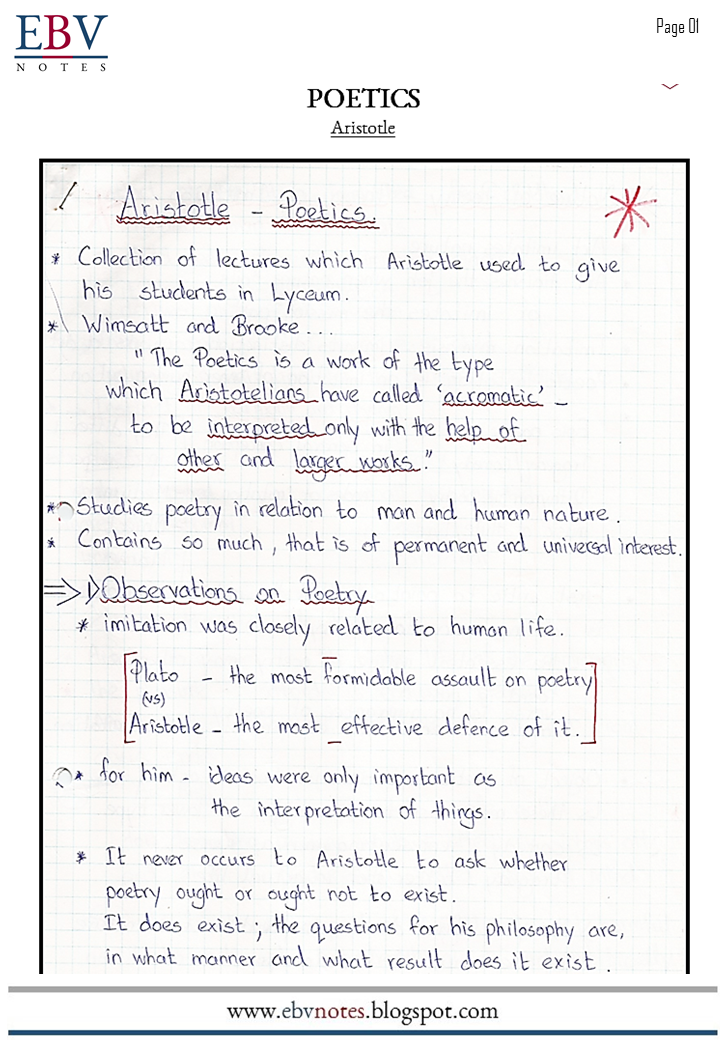 EBV
NOTES
Page 01
POETICS
Aristotle
Aristotle - Poetics.
* Collection of lectures which Aristotle used to give
his students in Lyceum.
* Wimsatt and Brooke...
"The Poetics is a work of the type
which Aristotelians have called 'acromatic' -
to be interpreted only with the help of
other and larger works."
* Studies poetry in relation to man and human nature.
* Contains so much, that is of permanent and universal interest.
⇒ 1) Observations on Poetry
* imitation was closely related to human life.
Plato - the most formidable assault on poetry
(vs)
Aristotle - the most effective defence of it.
* for him - ideas were only important as
the interpretation of things.
* It never occurs to Aristotle to ask whether
poetry ought or ought not to exist.
It does exist; the questions for his philosophy are,
in what manner and what result does it exist.
www.ebvnotes.blogspot.com